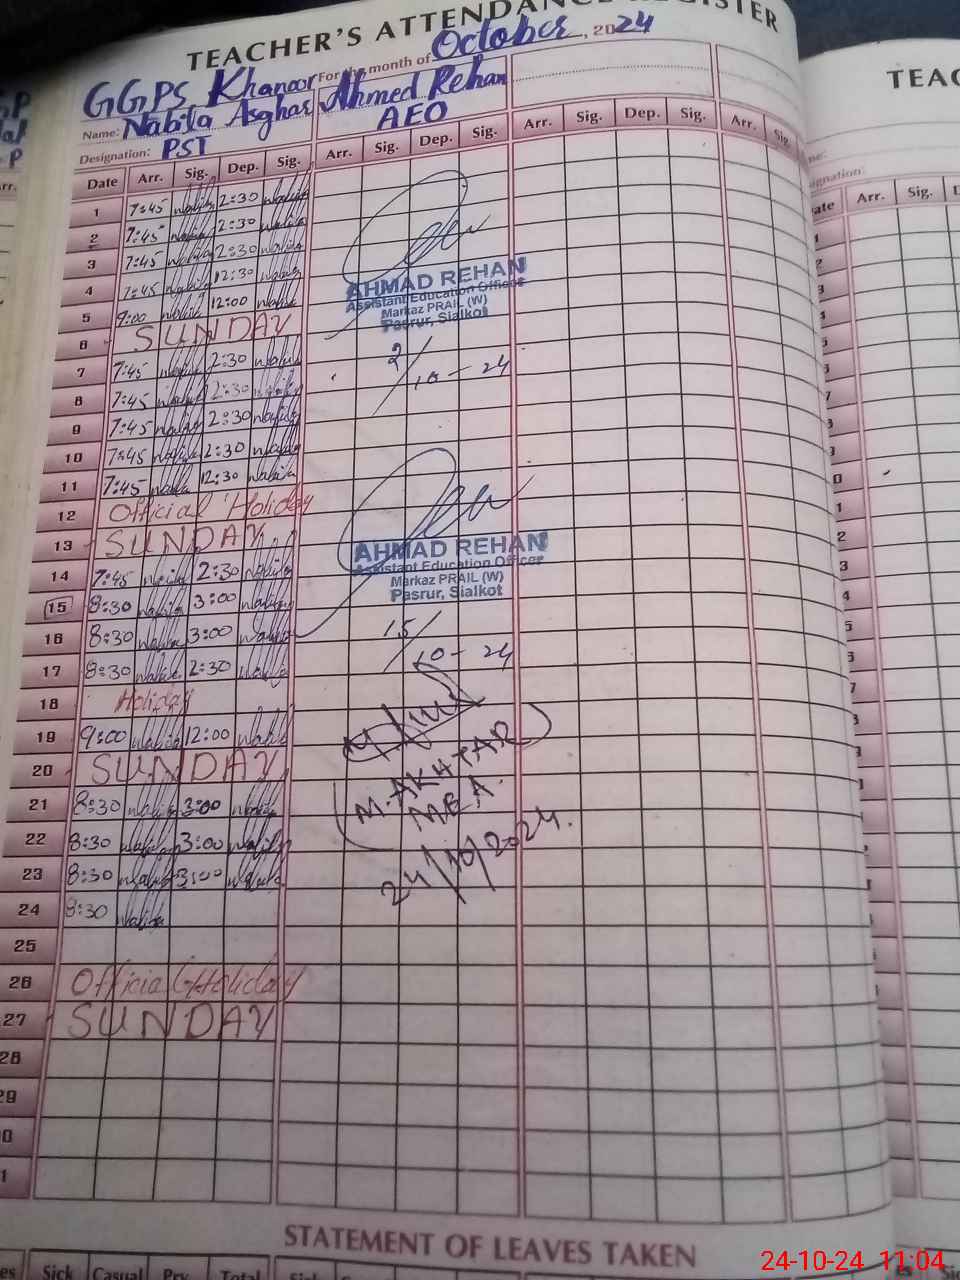 TEACHER'S ATTENDANCE REGISTER
For the month of October, 2024
GGPS, Khanoor
Name: Nabila Asghar Ahmed Rehan
Designation: PST AEO
Date Arr. Sig. Dep. Sig. Arr. Sig. Dep. Sig. Arr. Sig. Dep. Sig. Arr. Sig.
1 7:45 Nabila 2:30 Nabila
2 7:45 Nabila 2:30 Nabila
3 7:45 Nabila 2:30 Nabila
4 7:45 Nabila 12:30 Nabila
5 9:00 Nabila 12:00 Nabila
6 SUNDAY
7 7:45 Nabila 2:30 Nabila
8 7:45 Nabila 2:30 Nabila
9 7:45 Nabila 2:30 Nabila
10 7:45 Nabila 2:30 Nabila
11 7:45 Nabila 12:30 Nabila
12 Official Holiday
13 SUNDAY
14 7:45 Nabila 2:30 Nabila
15 8:30 Nabila 3:00 Nabila
16 8:30 Nabila 3:00 Nabila
17 8:30 Nabila 2:30 Nabila
18 Holiday
19 9:00 Nabila 12:00 Nabila
20 SUNDAY
21 8:30 Nabila 3:00 Nabila
22 8:30 Nabila 3:00 Nabila
23 8:30 Nabila 3:00 Nabila
24 8:30 Nabila
25
26 Official Holiday
27 SUNDAY
28
29
AHMAD REHAN
Assistant Education Officer
Markaz PRAIL (W)
Pasrur, Sialkot
2/10-24
AHMAD REHAN
Assistant Education Officer
Markaz PRAIL (W)
Pasrur, Sialkot
15/10-24
(M. AKHTAR)
MEA.
24/10/2024.
STATEMENT OF LEAVES TAKEN
Sick Casual Prv. Total Sick
TEAC
Arr. Sig.
24-10-24 11:04